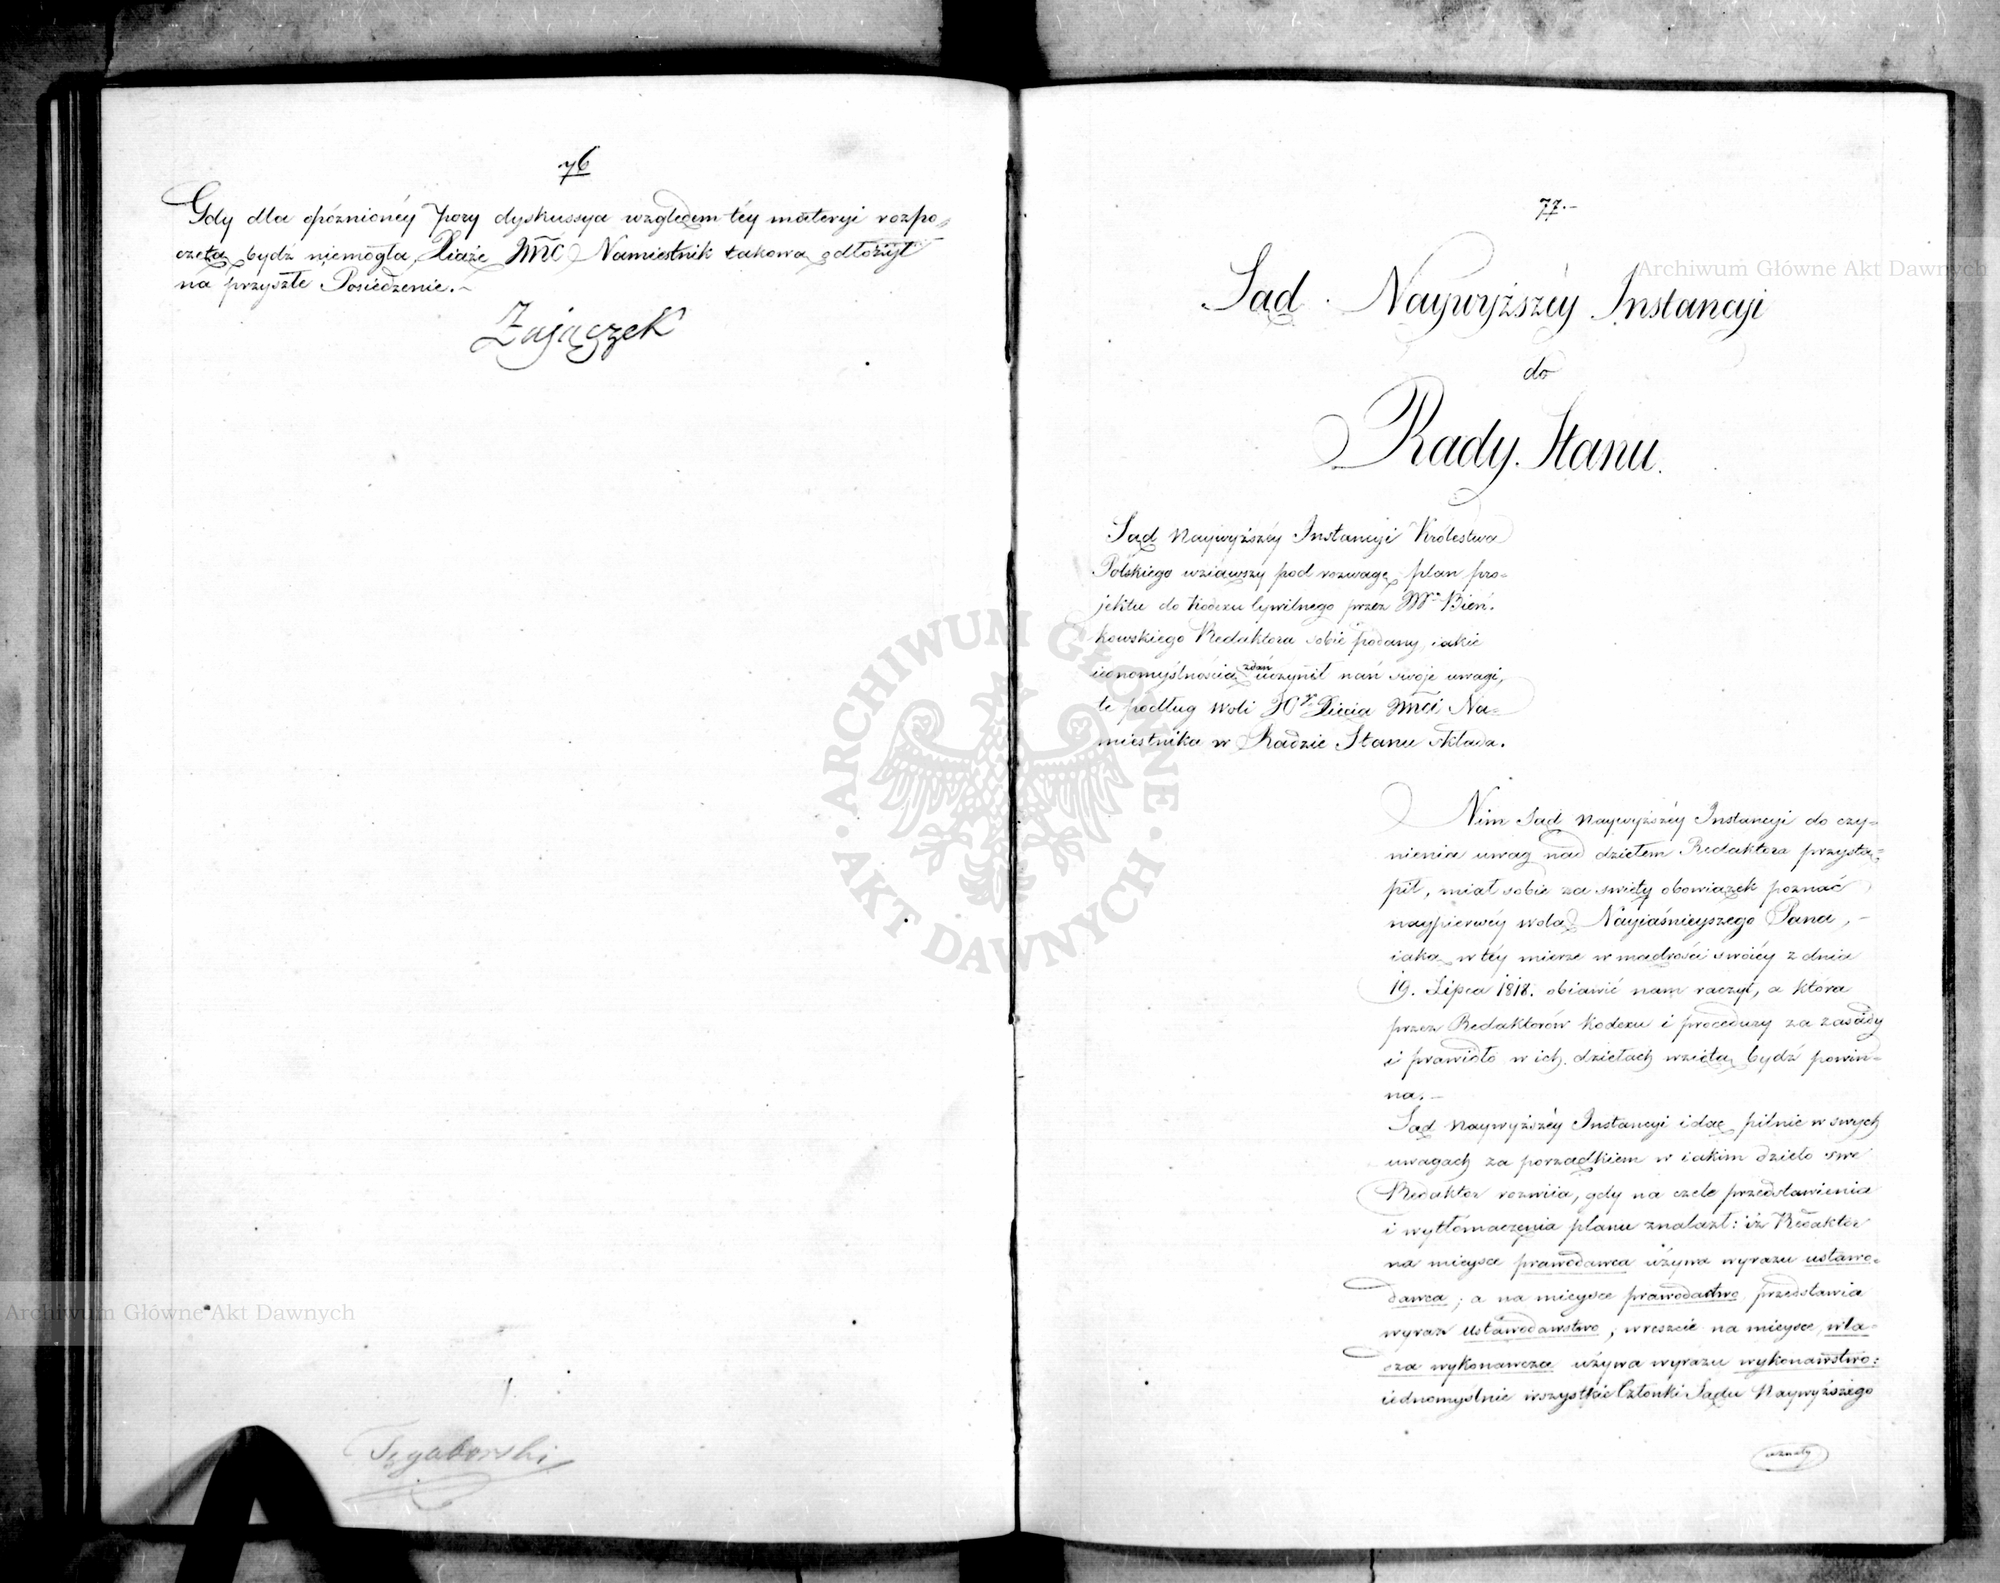 76
Gdy dla opóznionéy pory dyskussya względem téy materyi rozpo-
częta bydź niemogła, Xiąże Jmć Namiestnik takową odłożył
na przyszłe Posiedzenie.
Zajączek
Tęgoborski
77.
Sąd Naywyższéy Instancyi
do
Rady Stanu.
Sąd Naywyższéy Instancyi Królestwa
Polskiego wziąwszy pod rozwagę plan pro-
jektu do Kodexu Cywilnego przez Mr Bień.
kowskiego Redaktora sobie podany, jakie
iednomyślnością zdań uczynił nań swoje uwagi,
te podług woli JOo Xięcia Jmći Na-
miestnika w Radzie Stanu składa.
Nim Sąd Naywyższéy Instancyi do czy-
nienia uwag nad dziełem Redaktora przystą-
pił, miał sobie za swięty obowiązek poznać
naypierwéy wolą Nayiaśnieyszego Pana,
iaką w téy mierze w mądrości swoiéy z dnia
19. Lipca 1818. obiawić nam raczył, a która
przez Redaktorów Kodexu i procedury za zasady
i prawidło w ich dziełach wziętą bydź powin-
na.
Sąd Naywyższéy Instancyi idąc pilnie w swych
uwagach za porządkiem w iakim dzieło swe
Redaktor rozwiia, gdy na czele przedstawienia
i wytłómaczenia planu znalazł: iż Redaktor
na mieysce prawodawca używa wyrazu ustawo-
dawca; a na mieysce prawodactwo przedstawia
wyraz ustawodawstwo; wreszcie na mieysce wła-
dza wykonawcza używa wyrazu wykonawstwo:
iednomyślnie wszystkie Członki Sądu Naywyższego
uznały
Archiwum Główne Akt Dawnych
Archiwum Główne Akt Dawnych
ARCHIWUM GŁÓWNE
AKT DAWNYCH